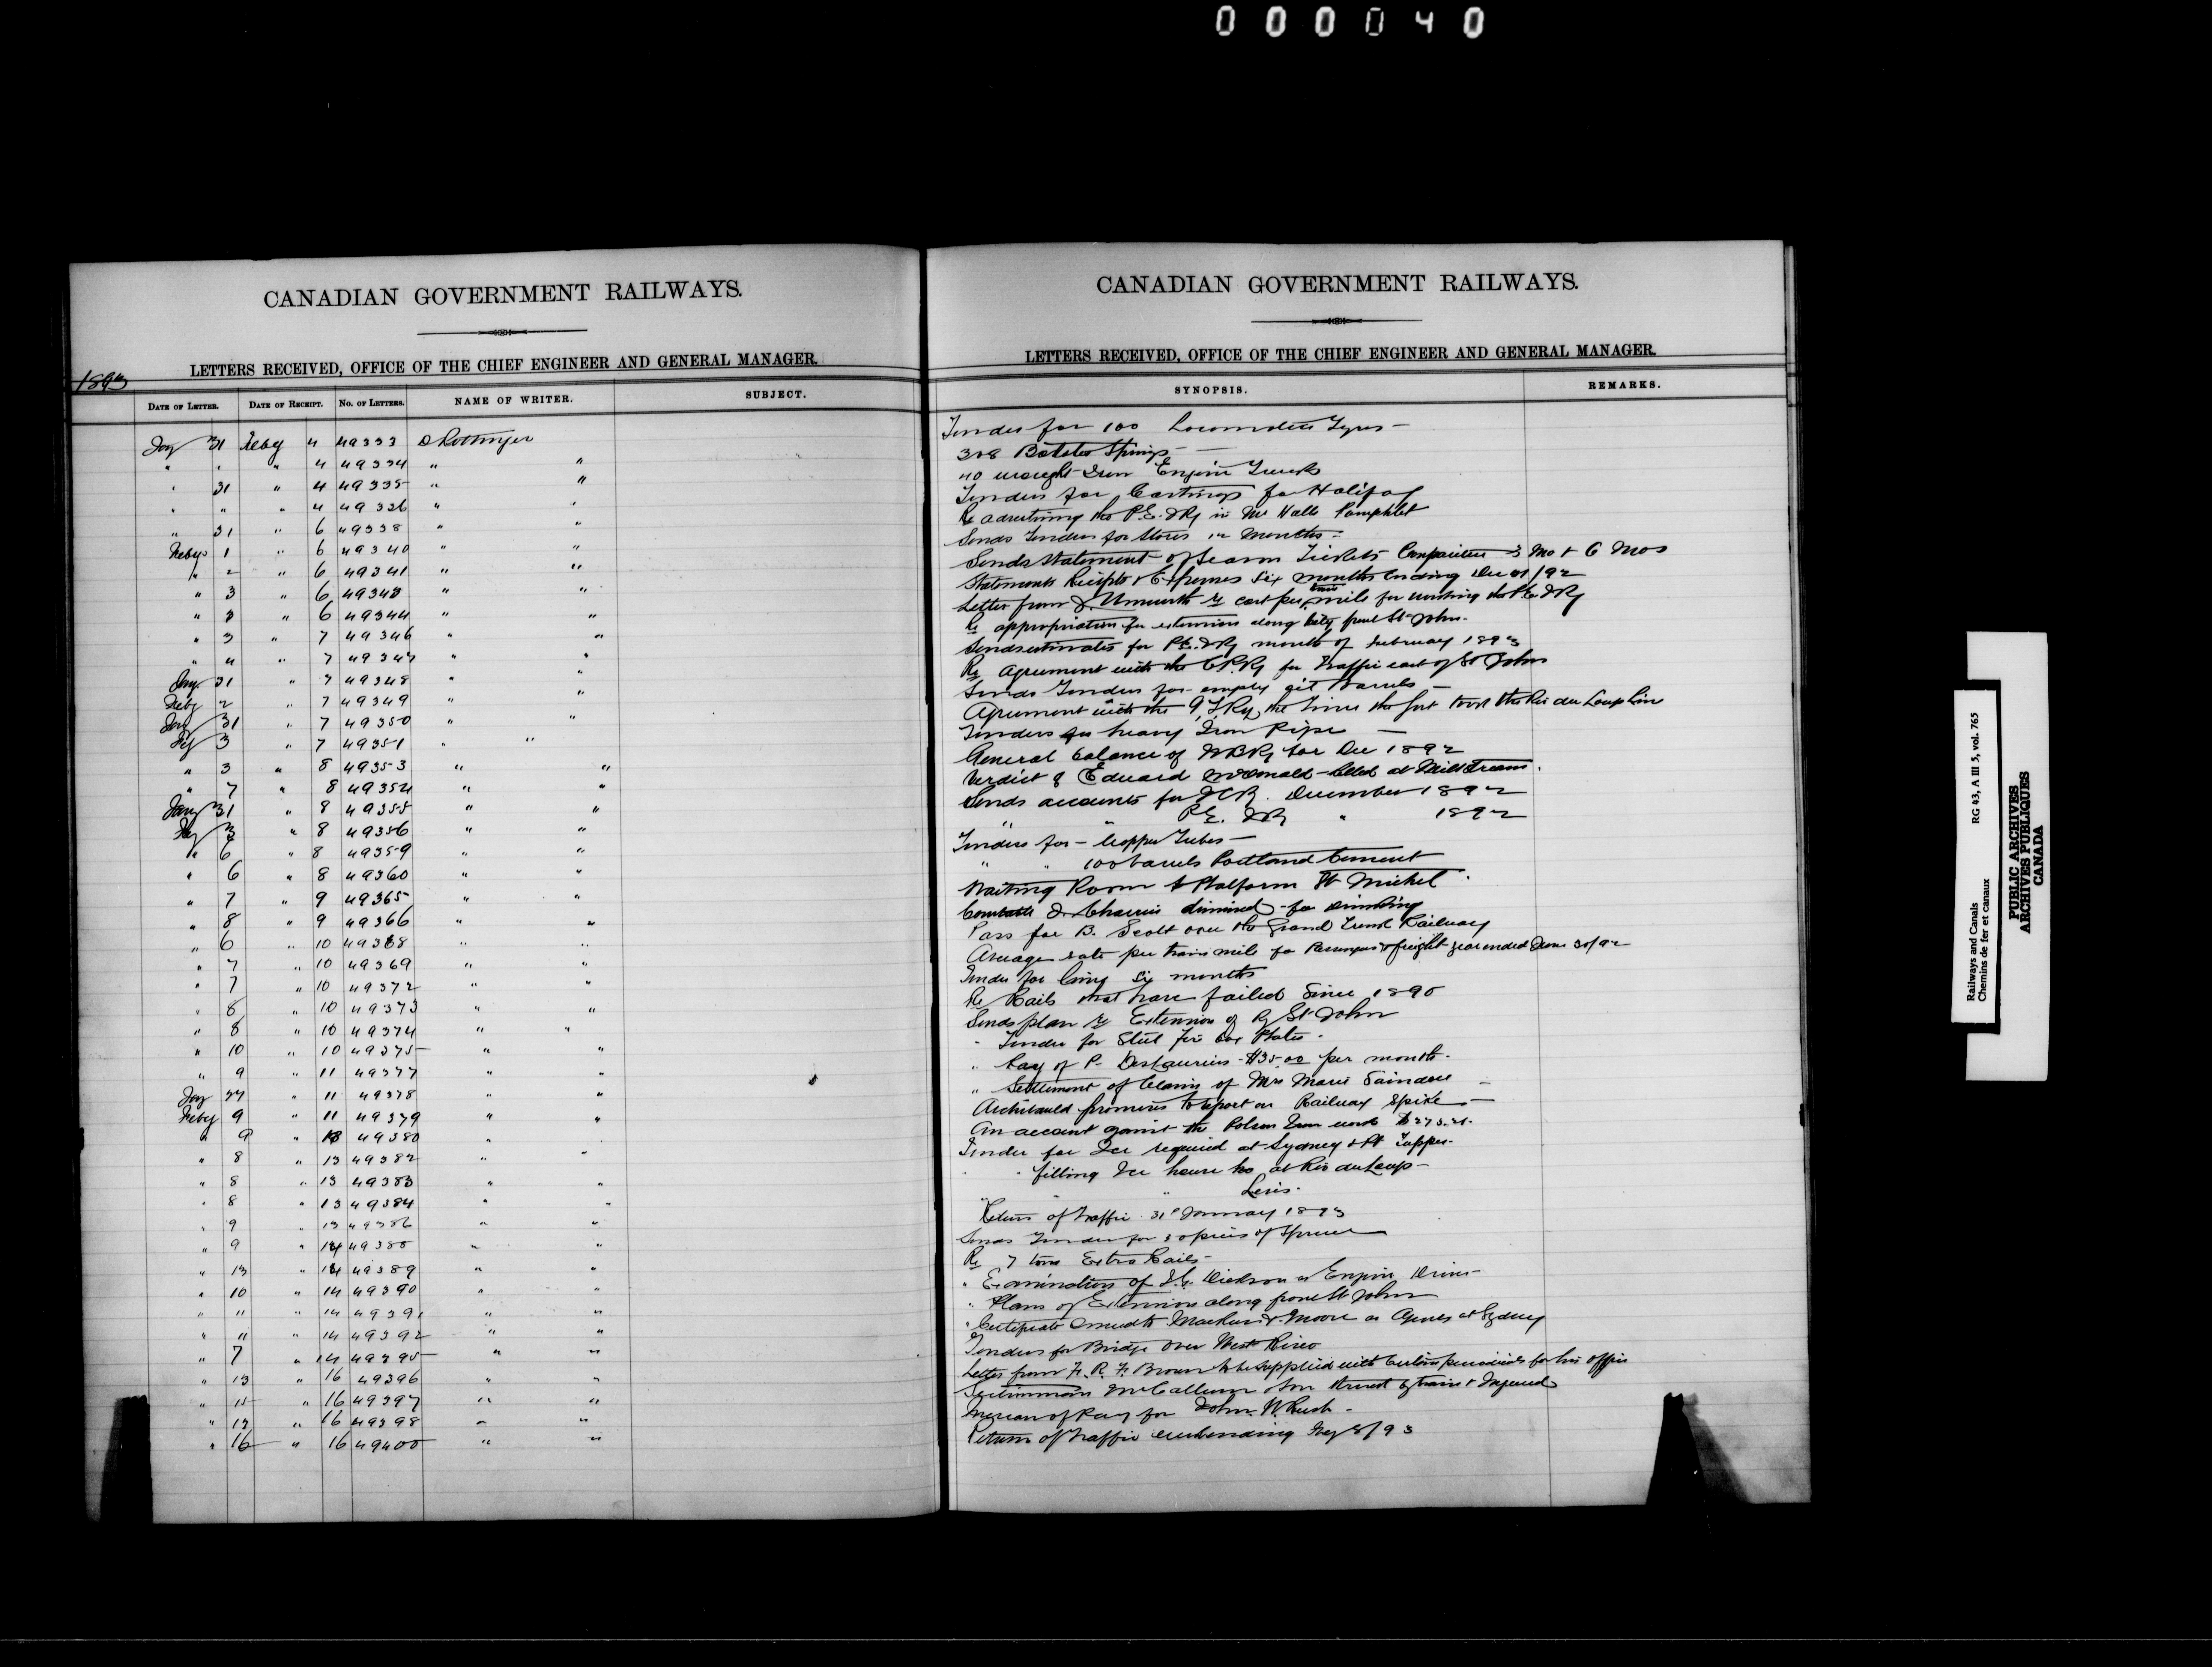 000040
CANADIAN GOVERNMENT RAILWAYS.
LETTERS RECEIVED, OFFICE OF THE CHIEF ENGINEER AND GENERAL MANAGER.
1893
DATE OF LETTER. DATE OF RECEIPT. NO. OF LETTERS. NAME OF WRITER. SUBJECT.
Jay 31 Feby 4 49333 D Pottinger
" " " 4 49334 " "
" 31 " 4 49335 " "
" " " 4 49336 " "
" 31 " 6 49338 " "
Feby 1 " 6 49340 " "
" 2 " 6 49341 " "
" 3 " 6 49343 " "
" 3 " 6 49344 " "
" 3 " 7 49346 " "
" 4 " 7 49347 " "
Jany 31 " 7 49348 " "
Feby 2 " 7 49349 " "
Jany 31 " 7 49350 " "
Fey 3 " 7 49351 " "
" 3 " 8 49353 " "
" 7 " 8 49354 " "
Jany 31 " 8 49355 " "
Fey 3 " 8 49356 " "
" 6 " 8 49359 " "
" 6 " 8 49360 " "
" 7 " 9 49365 " "
" 8 " 9 49366 " "
" 6 " 10 49368 " "
" 7 " 10 49369 " "
" 7 " 10 49372 " "
" 8 " 10 49373 " "
" 8 " 10 49374 " "
" 10 " 10 49375 " "
" 9 " 11 49377 " "
Jay 27 " 11 49378 " "
Feby 9 " 11 49379 " "
" 9 " 13 49380 " "
" 8 " 13 49382 " "
" 8 " 13 49383 " "
" 8 " 13 49384 " "
" 9 " 13 49386 " "
" 9 " 14 49388 " "
" 13 " 14 49389 " "
" 10 " 14 49390 " "
" 11 " 14 49391 " "
" 11 " 14 49392 " "
" 7 " 14 49395 " "
" 13 " 16 49396 " "
" 15 " 16 49397 " "
" 13 " 16 49398 " "
" 16 " 16 49400 " "
CANADIAN GOVERNMENT RAILWAYS.
LETTERS RECEIVED, OFFICE OF THE CHIEF ENGINEER AND GENERAL MANAGER.
SYNOPSIS. REMARKS.
Tender for 100 Locomotive Tyres —
308 Springs —
40 wrought Iron Engine Trucks
Tenders for Castings for Halifax
Re advertising the P.E.I Ry in Mr Halls Pamphlet
Sends Tenders for Stores 12 Months —
Sends statement of Season Tickets Comparison 3 Mo & 6 Mos
Statements Receipts & Expenses Six months ending Dec 31/92
Letter from J. Unsworth re cost per train mile for working the P.E.I Ry
Re appropriation for extension along city front St John.
Sends estimates for P.E.I Ry month of February 1893
Re Agreement with the C.P.Ry for Traffic east of St John
Sends Tenders for empty oil barrels —
Agreement with the G.T.Ry the Riv du Loup line
Tenders for heavy Iron Pipe —
General balance of Ry for Dec 1892
Verdict of Edward McDonald killed at Millstream.
Sends accounts for ICR. December 1892
" " P.E. I Ry " 1892
Tenders for — Copper Tubes —
" " 100 barrels Portland Cement
Waiting Room & Platform St Michel.
dismissed for drinking
Pass for B. Scott over the Grand Trunk Railway
Average rate per train mile for Passengers & freight year ended June 30/92
Tender for six months
Re Rails that have failed Since 1890
Sends plan re Extension of Ry St John
" Tender for Steel fire box Plates —
" Pay of P. $35.00 per month.
" Settlement of Claim of Mrs Marie
Archibauld promises to report on Railway Spike —
An account against the Polson Iron works $275.
Tender for Ice required at Sydney & Pt Tupper.
" filling Ice house at Riv du Loup —
" " " Levis.
Return of traffic 31st January 1893
Sends Tender for pieces of Spruce
Re 7 tons Extra Rails —
" Examination of J.G. Dickson as Engine Driver
" Plans of Extension along front St John
" Certificate & Moore as Agents at Sydney
Tenders for Bridge over West River
Letter from F. R. F. Brown to be supplied with certain periodicals for his office
McCallum struck by train & Injured
Increase of Pay for John W. Rush —
Return of traffic ending Fey 8/93
Railways and Canals RG 43, A III 5, vol. 765
Chemins de fer et canaux
PUBLIC ARCHIVES
ARCHIVES PUBLIQUES
CANADA